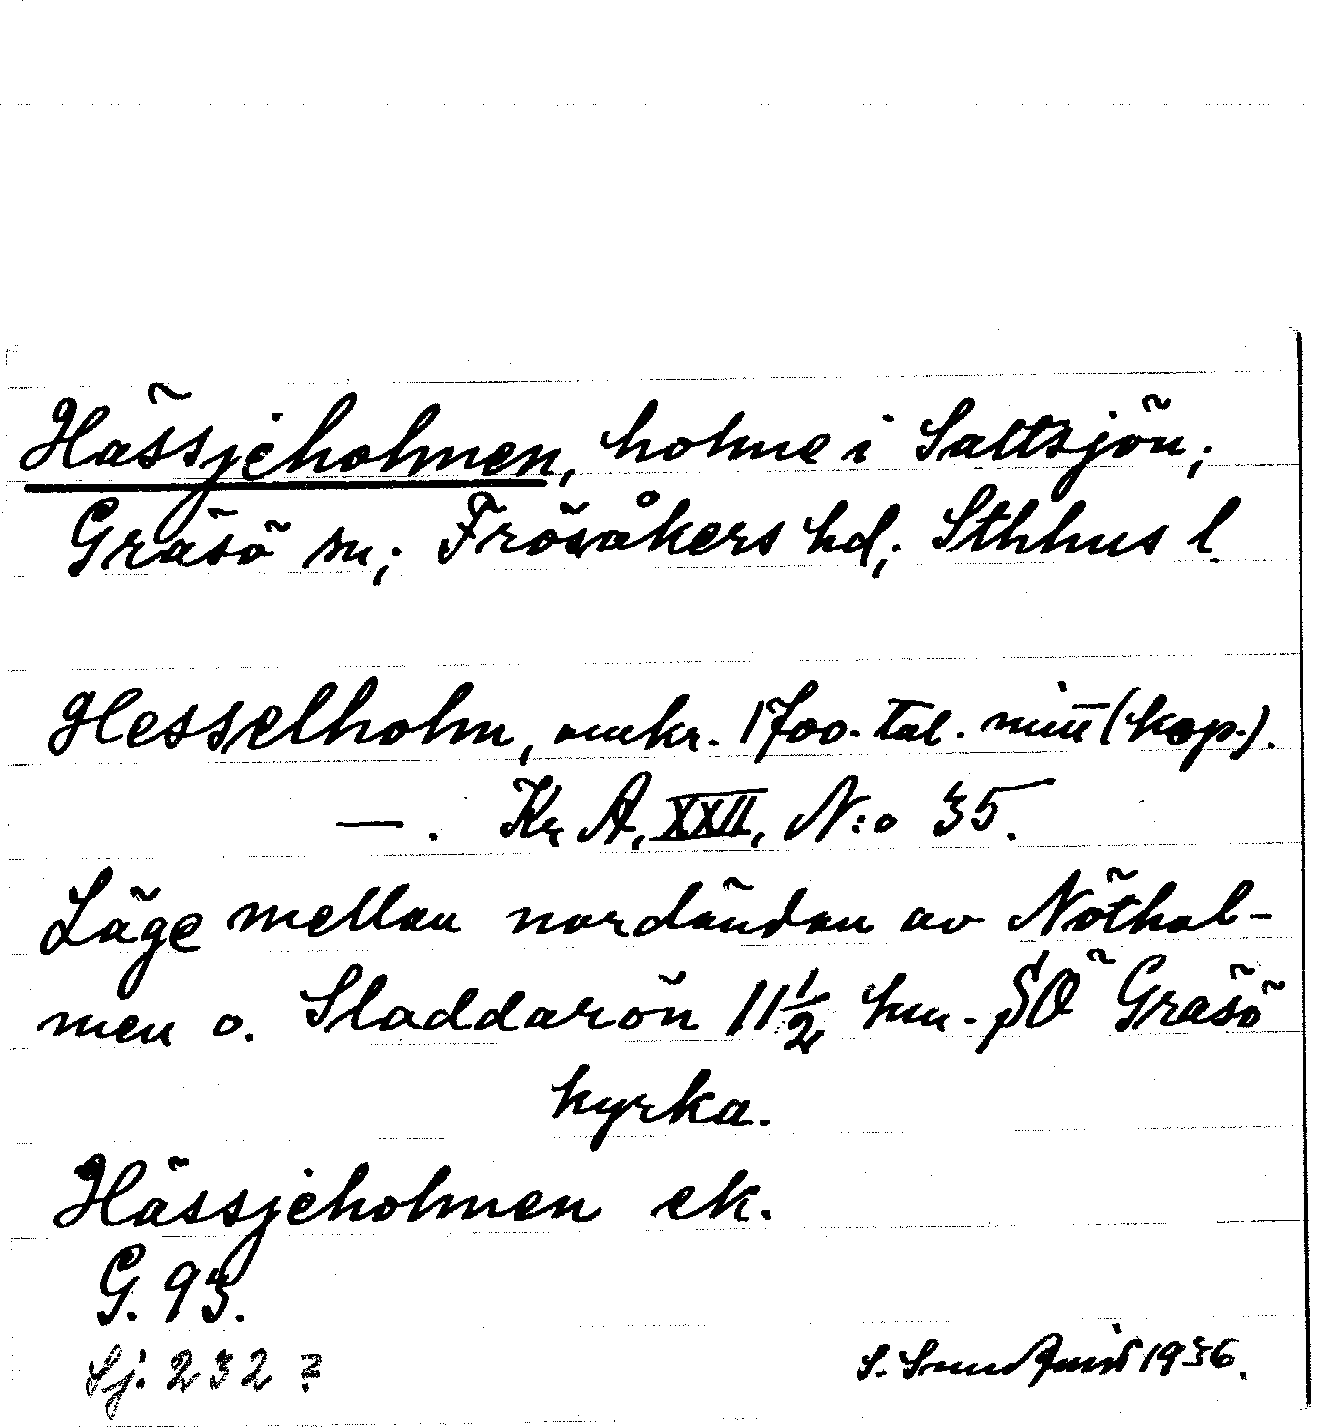 Hässjeholmen, holme i Saltsjön;
Gräsö sn; Frösåkers hd; Sthlms l.
Hesselholm, omkr. 1700-tal. mitt (kop.).
— . Kr A, XXII, N:o 35.
Läge mellan nordändan av Nöthol-
men o. Sladdarön 11 1/2 km. SÖ Gräsö
kyrka.
Hässjeholmen ek.
G. 93.
Sj. 232 ?
S. Sundqvist 1936.